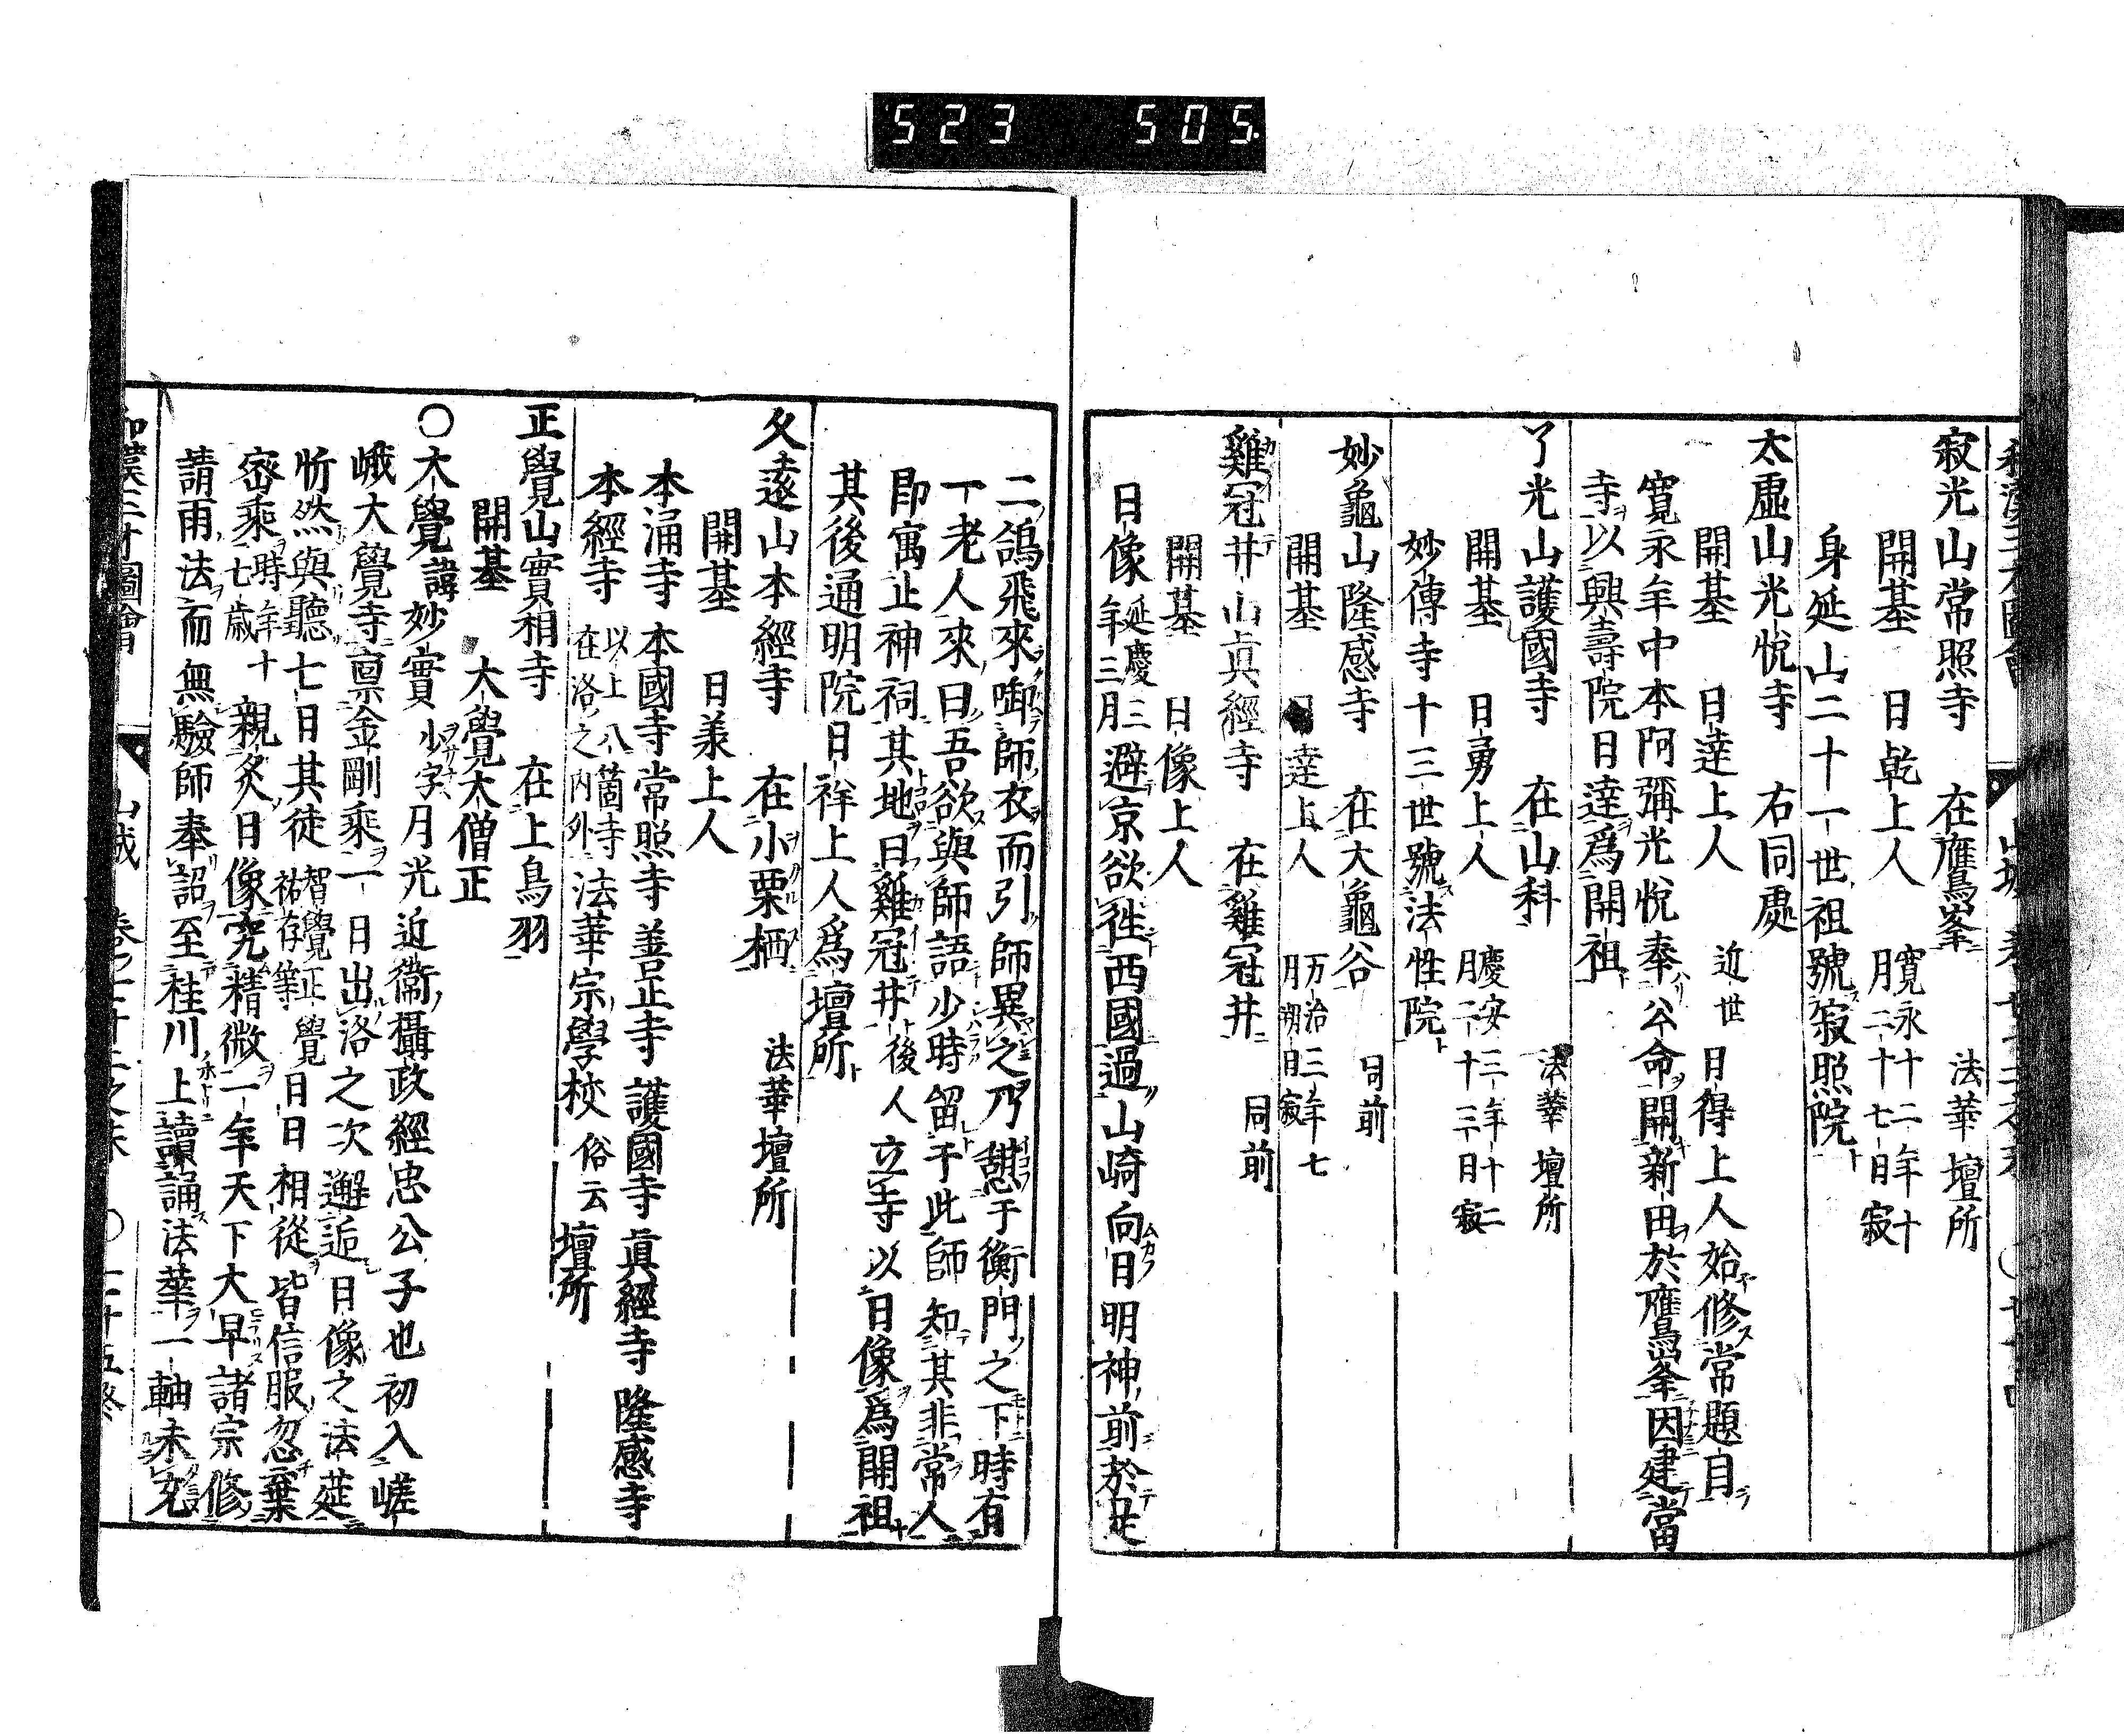 523 505
寂光山常照寺 在鷹峯 法華壇所
開基 日乾上人 寛永十二年十月二十七日寂
身延山二十一世祖號寂照院
太虛山光悅寺 右同處
開基 日達上人 近世 日得上人始修常題目
寛永年中本阿彌光悅奉公命開新田於鷹峯因建當
寺以興壽院日達爲開祖
了光山護國寺 在山科 法華壇所
開基 日勇上人 慶安三年十二月二十三日寂
妙傳寺十三世號法性院
妙龜山隆感寺 在大龜谷 同前
開基 日達上人 万治三年七月朔日寂
雞冠井山眞經寺 在雞冠井 同前
開基 日像上人
日像延慶三年三月避京欲徃西國過山崎向日明神前於是
二鴿飛來啣師衣而引師異之乃憩于衡門之下時有
一老人來曰吾欲與師語少時留于此師知其非常人
即寓止神祠其地曰雞冠井後人立寺以日像爲開祖
其後通明院日祥上人爲壇所
久遠山本經寺 在小栗栖 法華壇所
開基 日羕上人
本涌寺 本國寺 常照寺 善正寺 護國寺 眞經寺 隆感寺
本經寺 以上八箇寺在洛之内外法華宗學校俗云壇所
正覺山實相寺 在上鳥羽
開基 大覺大僧正
〇大覺諱妙實 少字月光 近衞攝政經忠公子也初入嵯
峨大覺寺禀金剛乘一日出洛之次邂逅日像之法莚
忻然與聽七日其徒 智覺正覺祐存等覺 日日相從皆信服忽棄
密乘 時年十七歳 親炙日像究精微一年天下大旱諸宗修
請雨法而無驗師奉詔至桂川上讀誦法華一軸未充
和漢三才圖會 山城 卷 〇二十五終